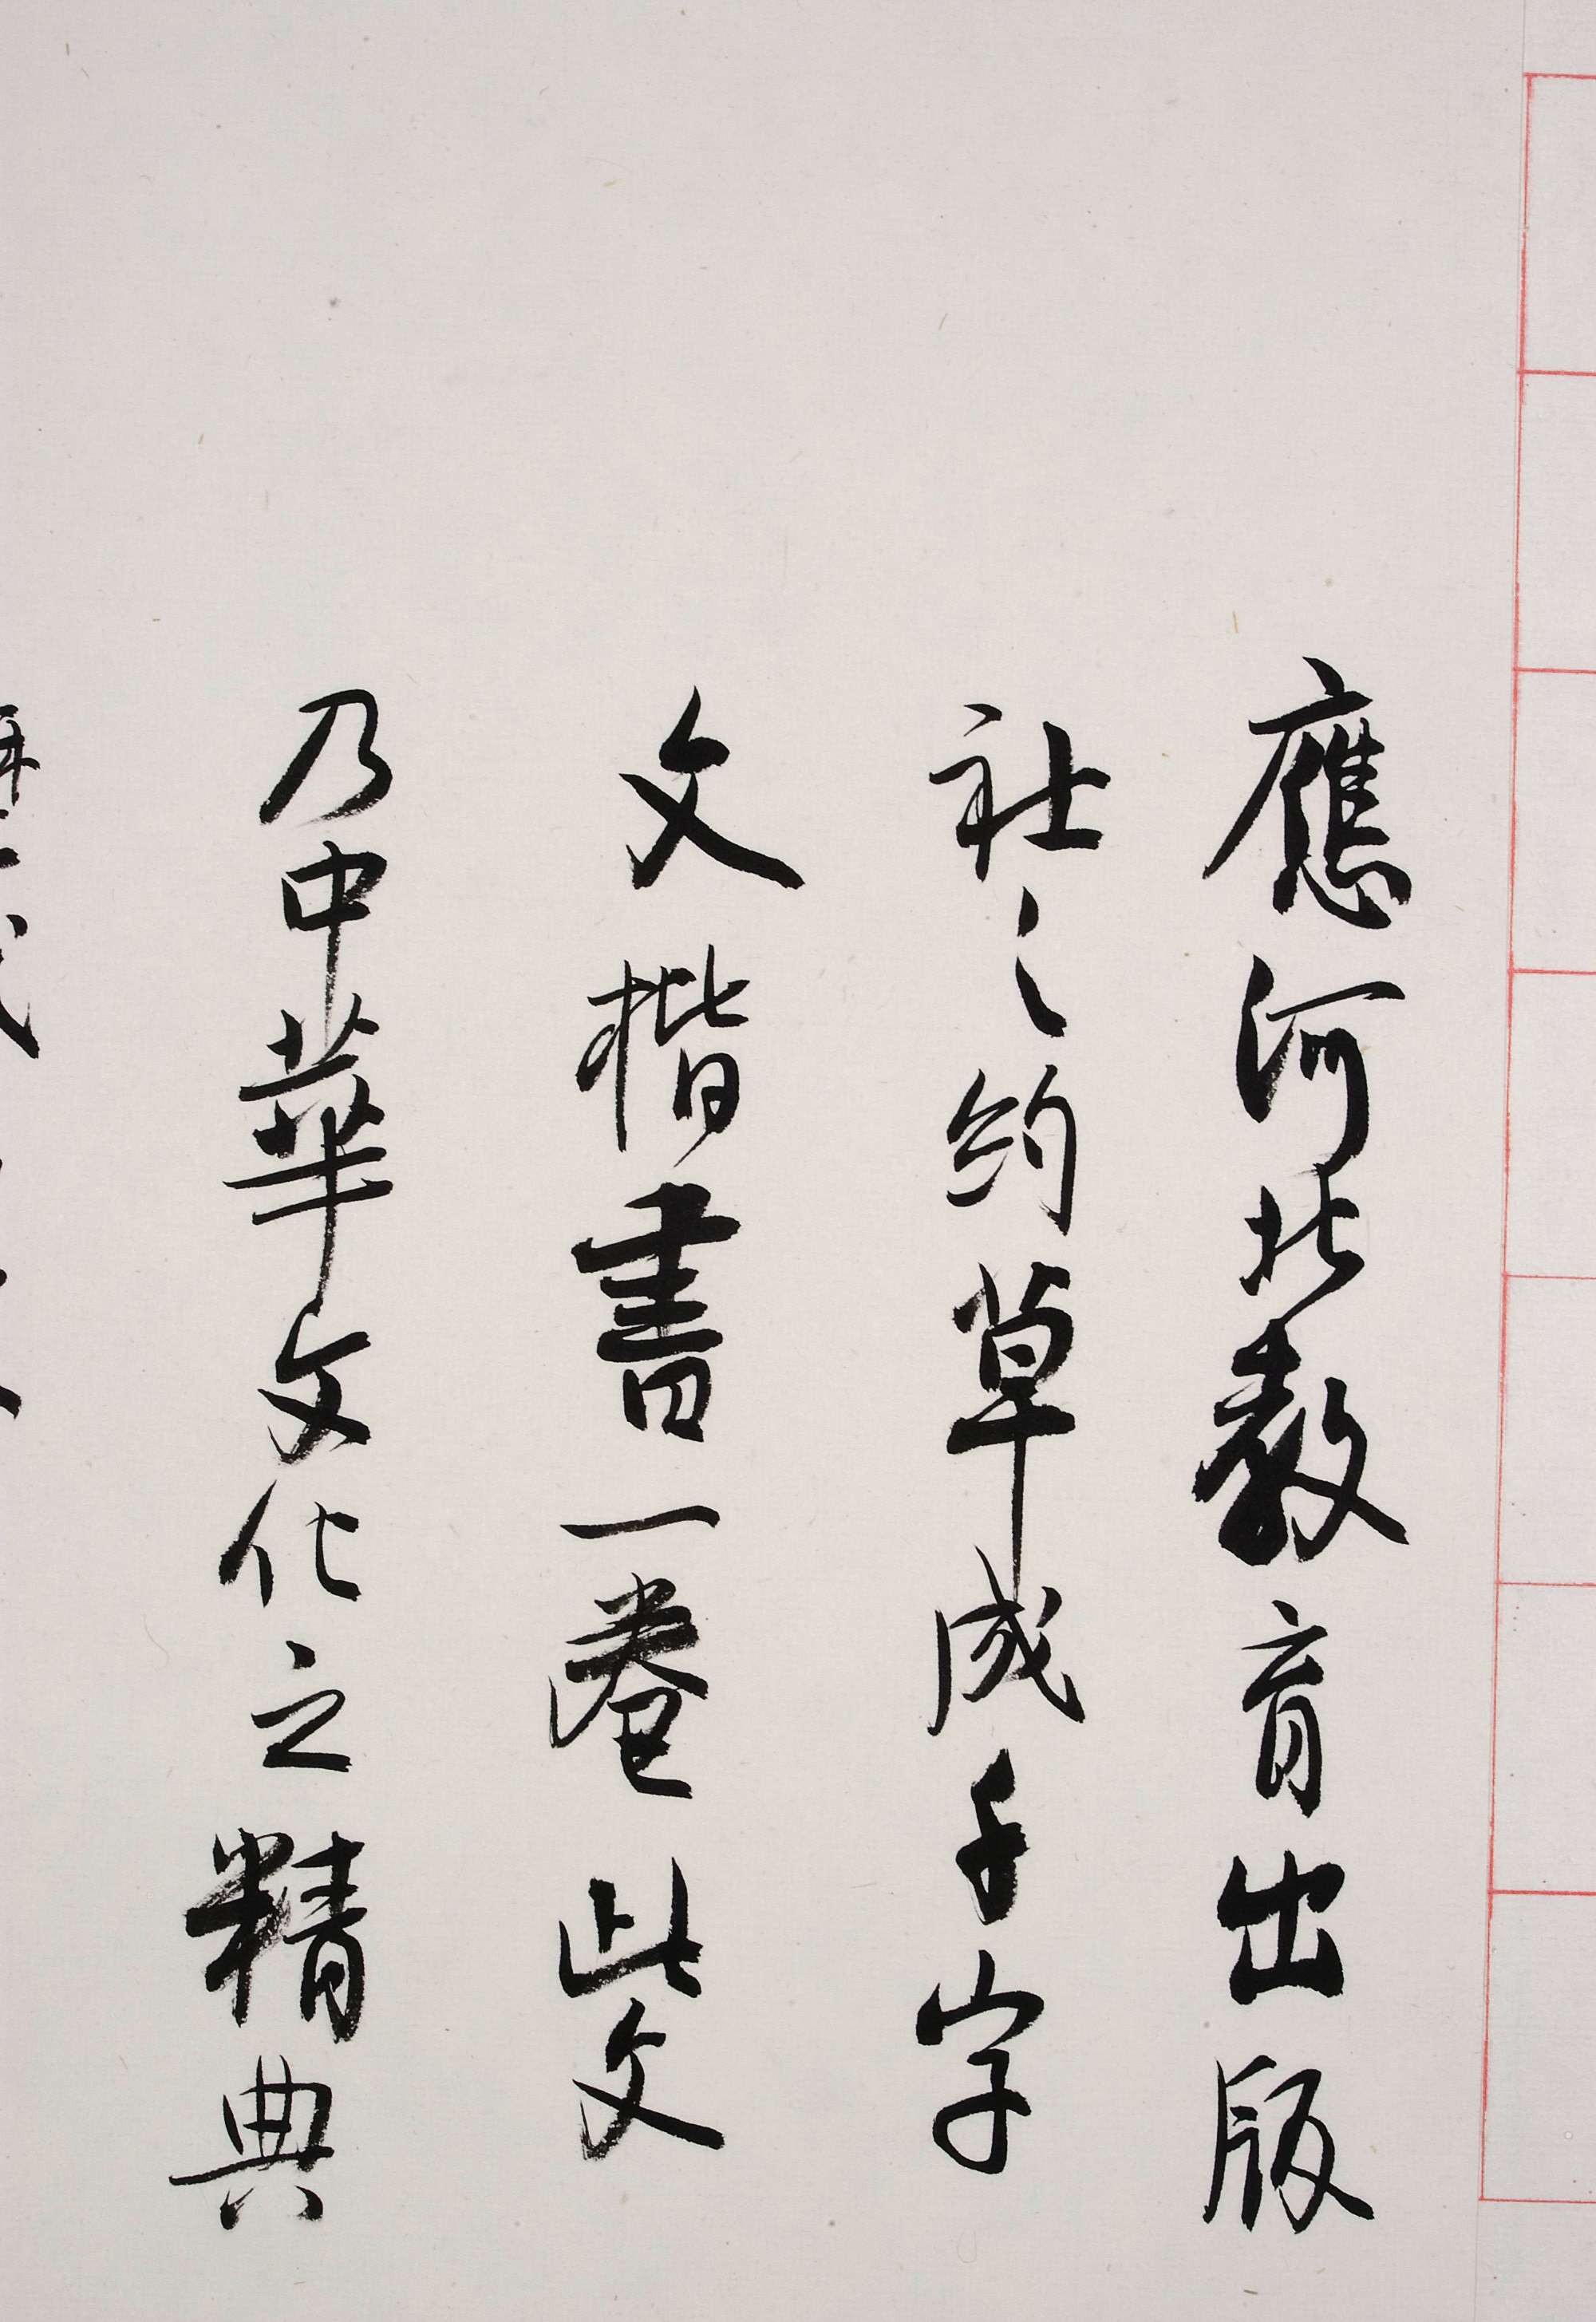 應河北教育出版
社之約草成千字
文楷書一卷此文
乃中華文化之精典